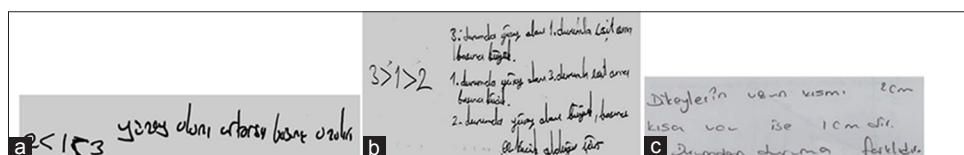 a
2<1<3 yüzey alanı artarsa basınç azalır
b
3>1>2
3. durumda yüzey alanı 1. durumla eşit ama
basıncı büyük.
1. durumda yüzey alanı 3. durumla eşit ama
basıncı küçük.
2. durumda yüzey alanı büyük, basıncı
en küçük olduğu için
c
Dikeyler'in uzun kısmı 2cm
kısa ise 1cm dir.
Durumdan duruma farklıdır.